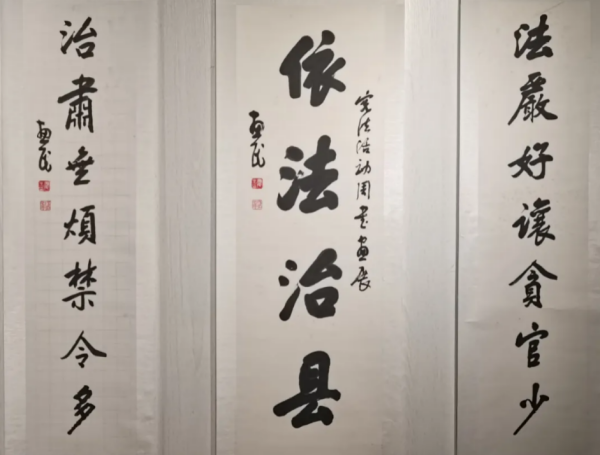 法嚴好讓貪官少
宪法活动周书画展
依法治县
治肅無煩禁令多